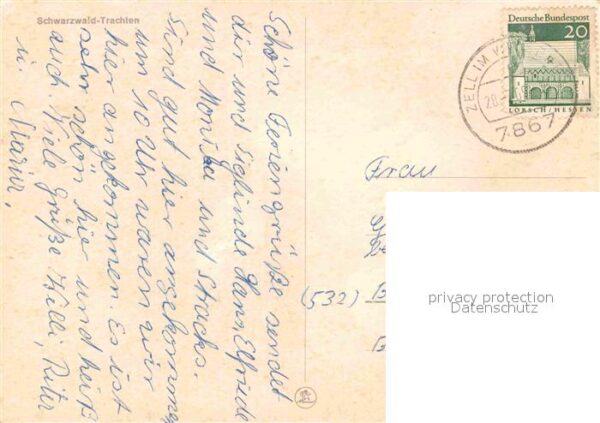 Schwarzwald-Trachten
Schöne Feriengrüße sendet
dir und Sieglinde Hans, Elfriede
und Monika und Strachs.
Sind gut hier angekommen
um 10 Uhr waren wir
hier angekommen. Es ist
sehr schön hier und heiß
auch. Viele Grüße Willi, Rita
u. Maria,
Deutsche Bundespost
20
LORSCH/HESSEN
ZELL IM
20.
7867
Frau
(532)
privacy protection
Datenschutz